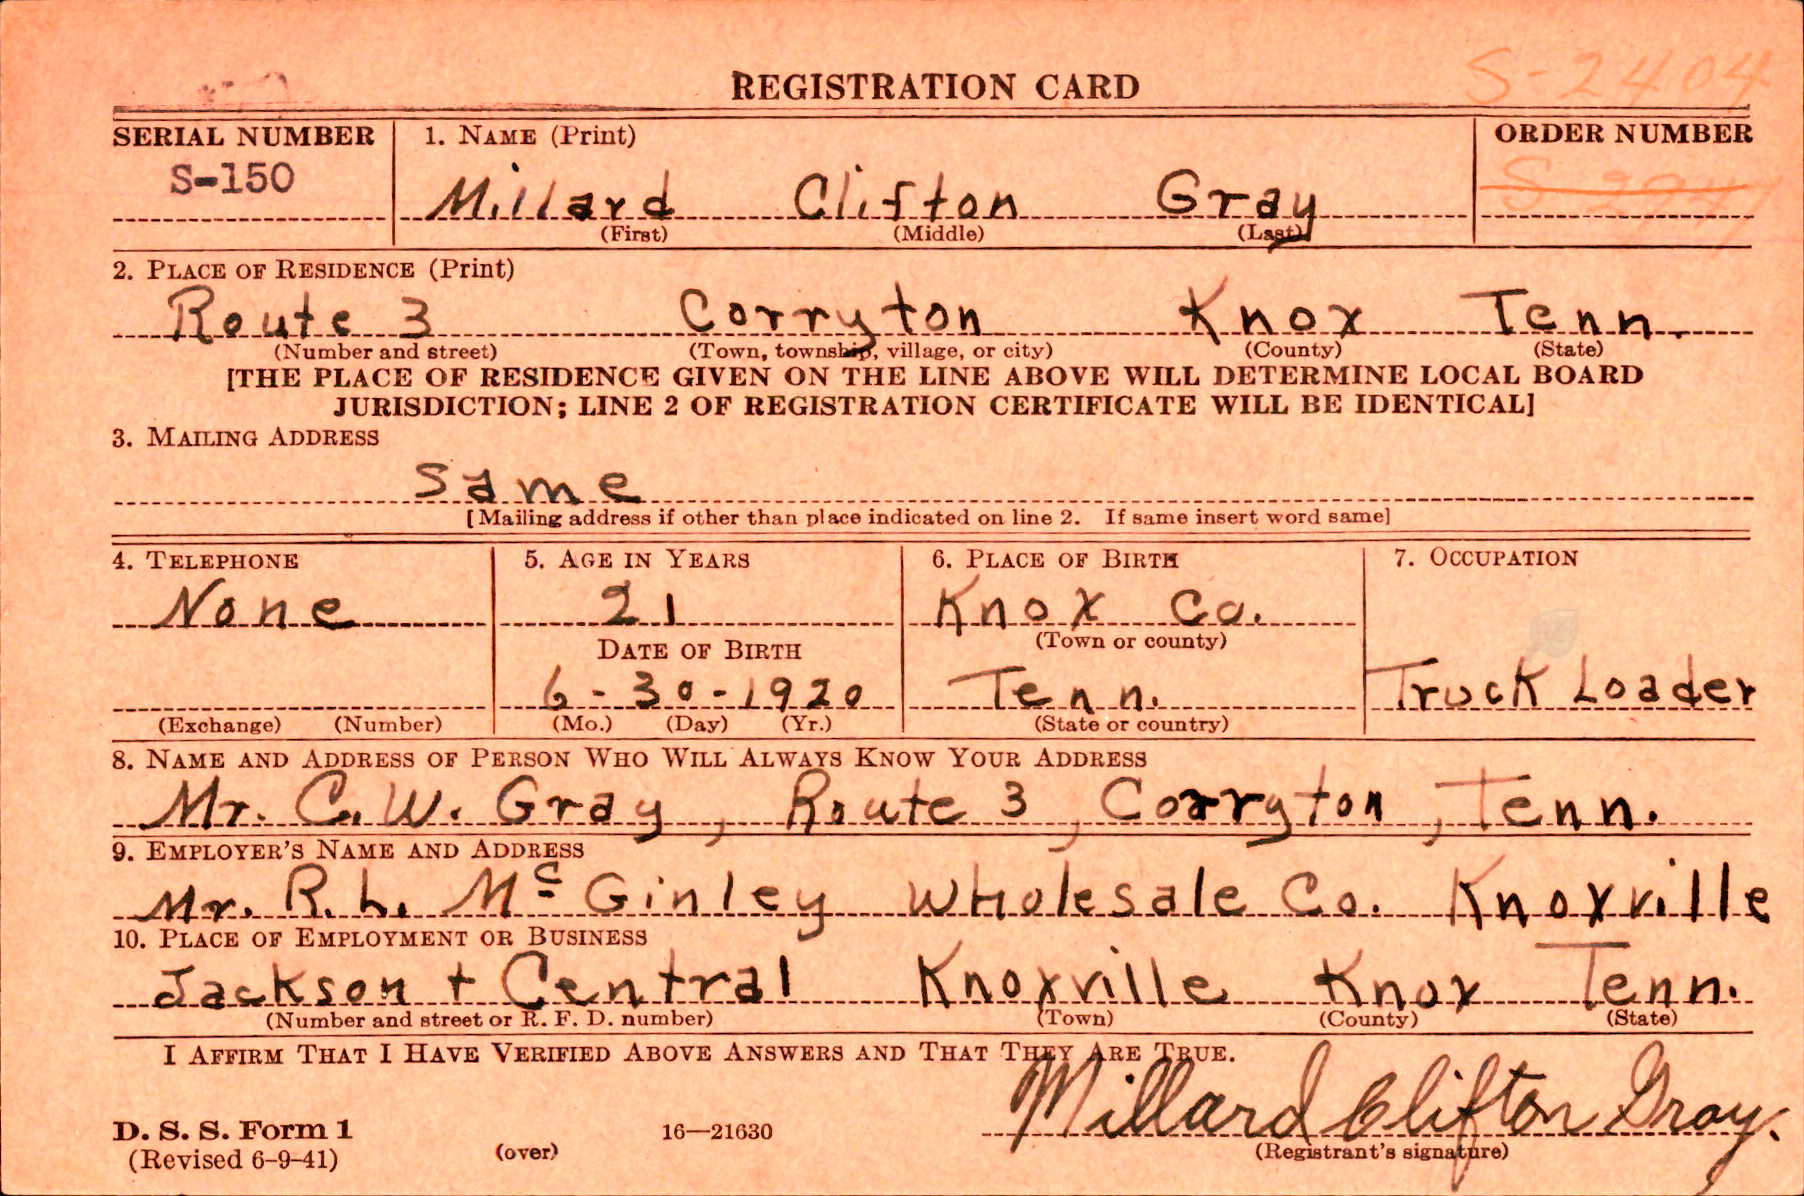 REGISTRATION CARD
S-2404
SERIAL NUMBER
S-150
1. NAME (Print)
Millard Clifton Gray
(First) (Middle) (Last)
ORDER NUMBER
2. PLACE OF RESIDENCE (Print)
Route 3 Corryton Knox Tenn.
(Number and street) (Town, township, village, or city) (County) (State)
[THE PLACE OF RESIDENCE GIVEN ON THE LINE ABOVE WILL DETERMINE LOCAL BOARD
JURISDICTION; LINE 2 OF REGISTRATION CERTIFICATE WILL BE IDENTICAL]
3. MAILING ADDRESS
Same
[Mailing address if other than place indicated on line 2. If same insert word same]
4. TELEPHONE
None
(Exchange) (Number)
5. AGE IN YEARS
21
DATE OF BIRTH
6-30-1920
(Mo.) (Day) (Yr.)
6. PLACE OF BIRTH
Knox Co.
(Town or county)
Tenn.
(State or country)
7. OCCUPATION
Truck Loader
8. NAME AND ADDRESS OF PERSON WHO WILL ALWAYS KNOW YOUR ADDRESS
Mr. C. W. Gray, Route 3, Corryton, Tenn.
9. EMPLOYER'S NAME AND ADDRESS
Mr. R. L. McGinley Wholesale Co. Knoxville
10. PLACE OF EMPLOYMENT OR BUSINESS
Jackson + Central Knoxville Knox Tenn.
(Number and street or R. F. D. number) (Town) (County) (State)
I AFFIRM THAT I HAVE VERIFIED ABOVE ANSWERS AND THAT THEY ARE TRUE.
Millard Clifton Gray.
(Registrant's signature)
D. S. S. Form 1
(Revised 6-9-41)
(over)
16—21630